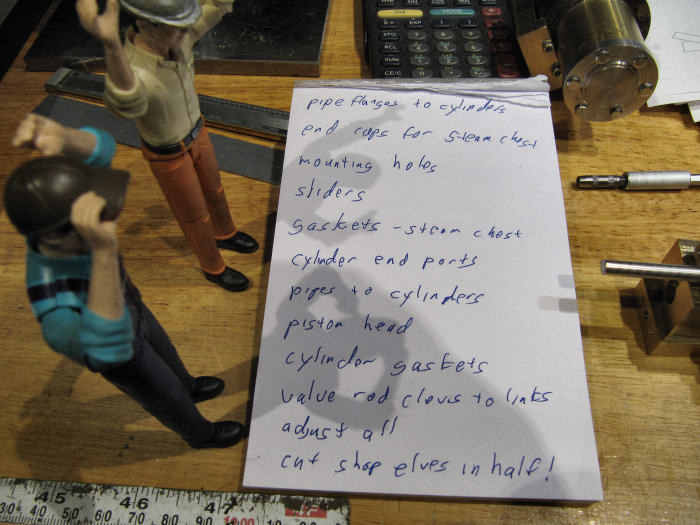 2nd
MODE
Σ+
EXP
STO
RCL
SUM
CE/C
pipe flanges to cylinders
end caps for steam chest
mounting holes
sliders
gaskets - steam chest
cylinder end ports
pipes to cylinders
piston head
cylinder gaskets
valve rod clevis to links
adjust all
cut shop elves in half!
45 46 47